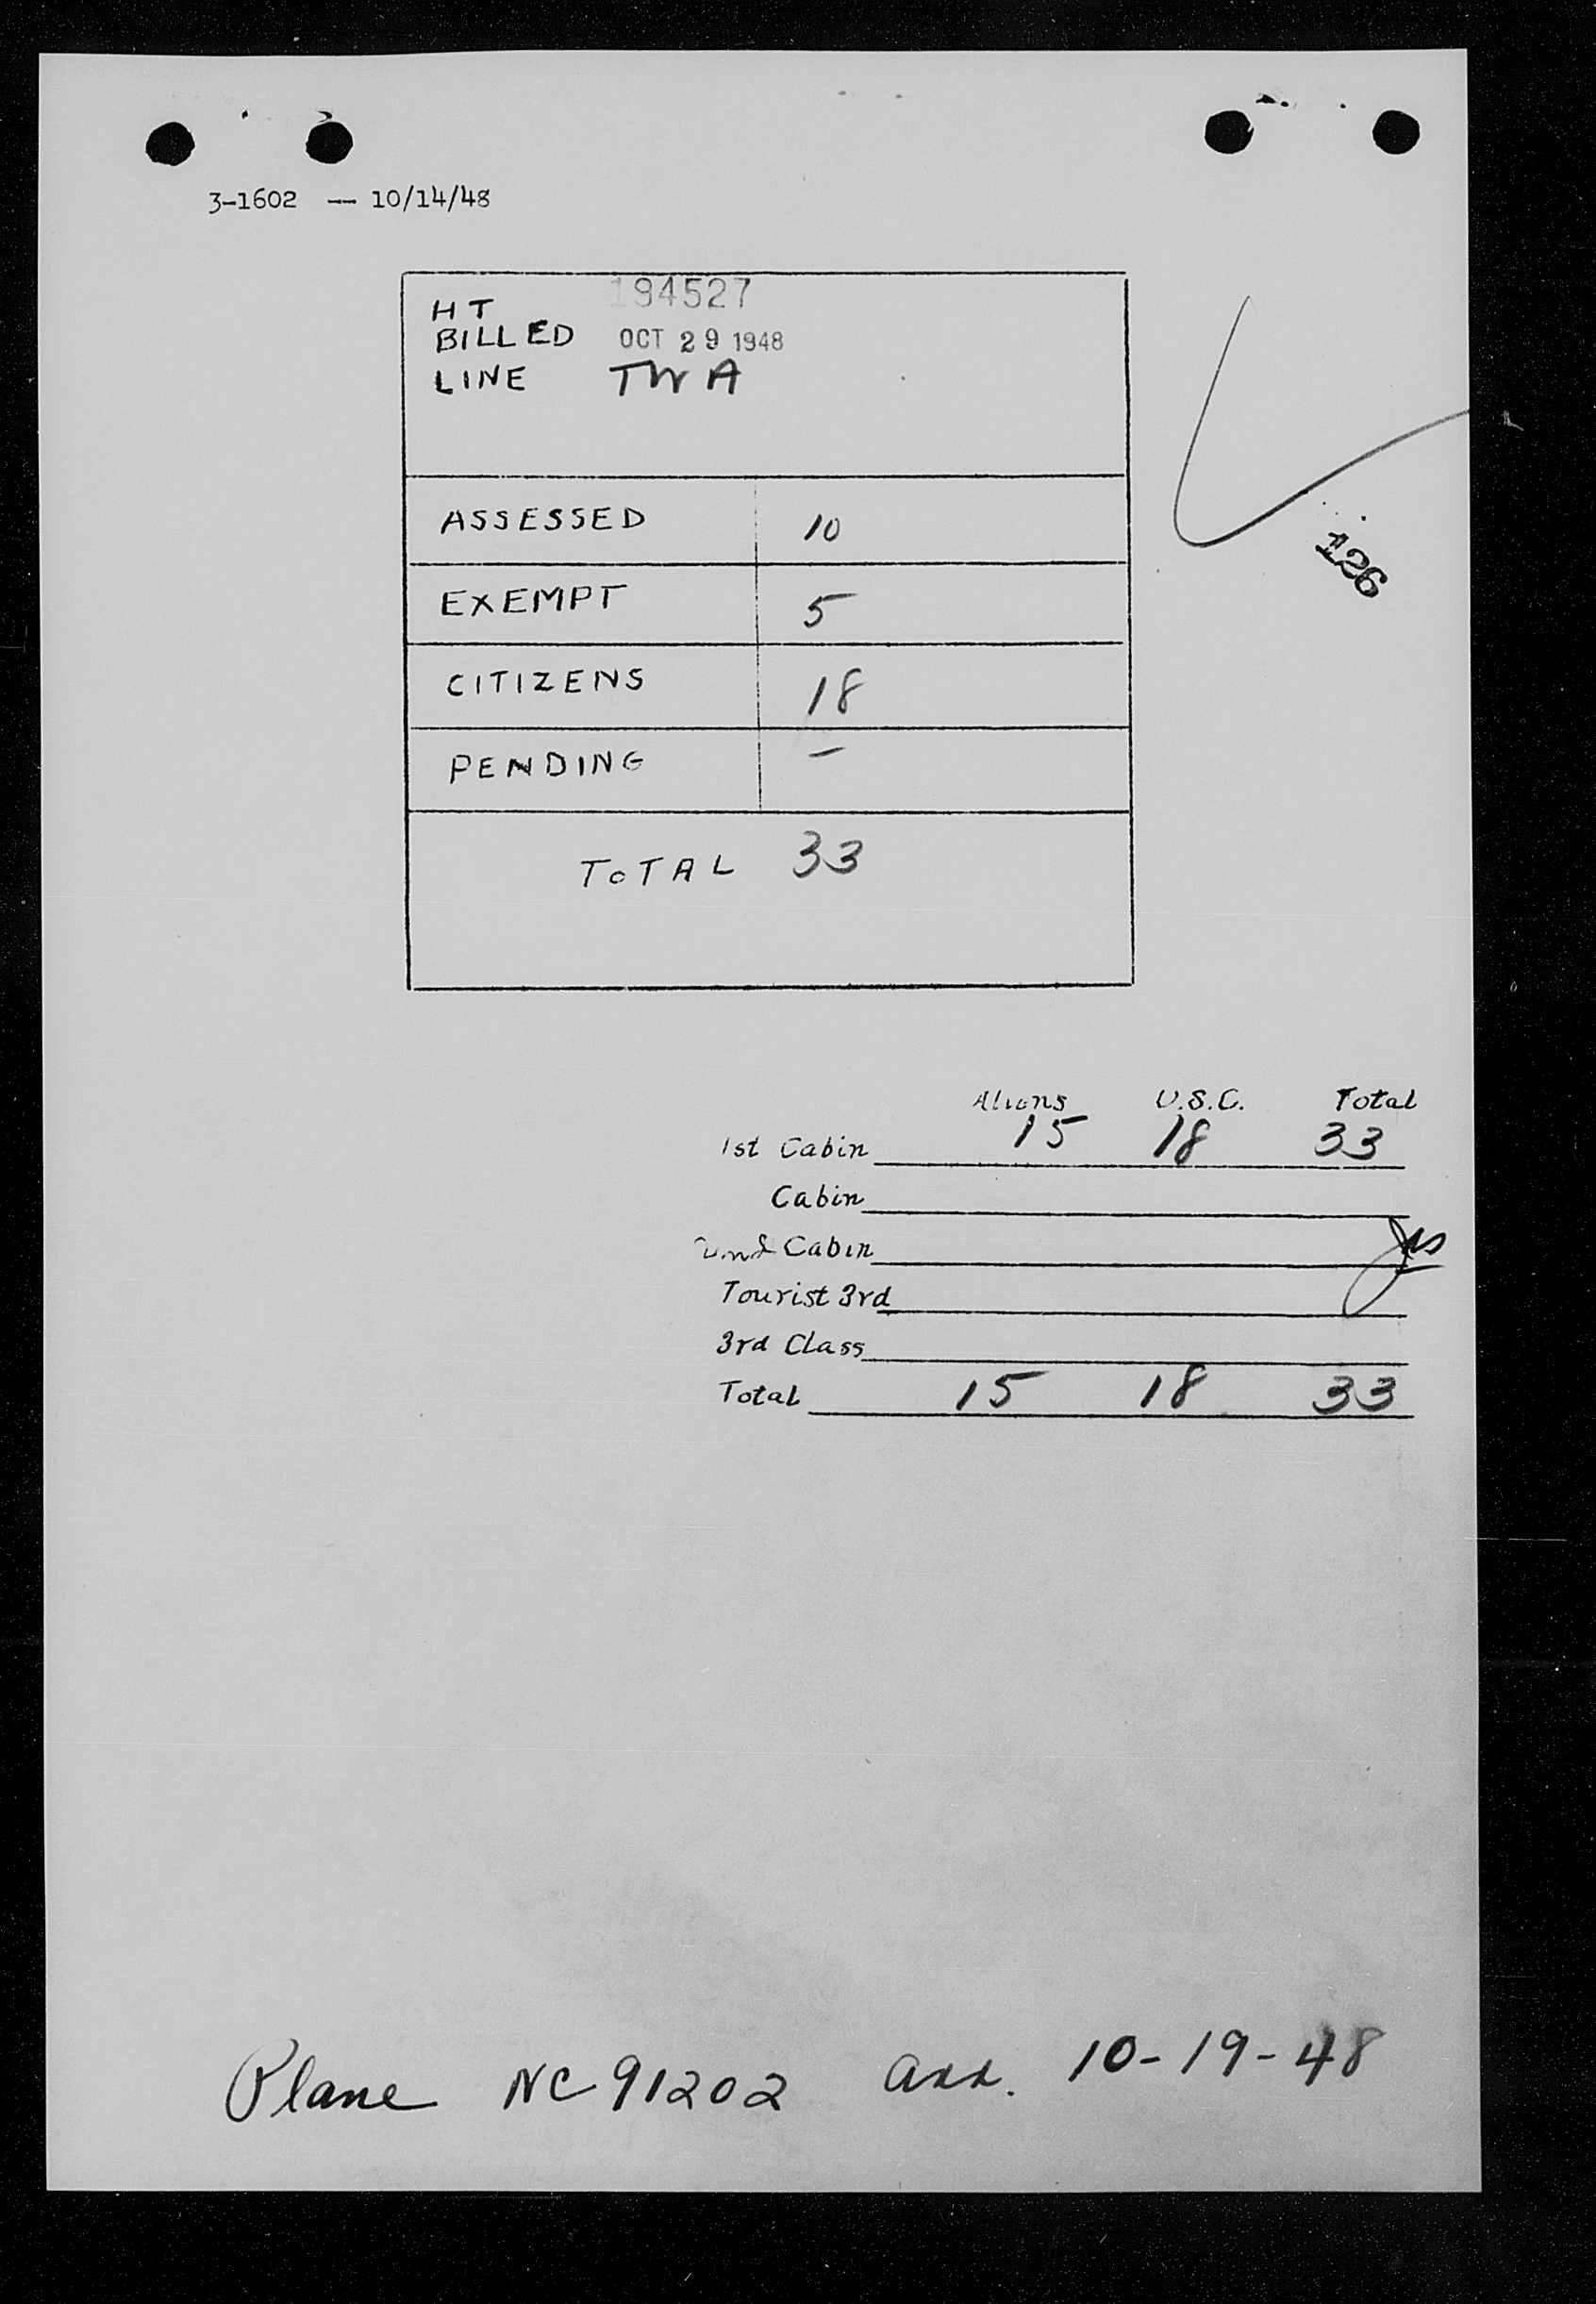 3-1602 — 10/14/48
HT 194527
BILLED OCT 29 1948
LINE TWA
126
ASSESSED 10
EXEMPT 5
CITIZENS 18
PENDING —
TOTAL 33
Aliens U.S.C. Total
1st Cabin 15 18 33
Cabin
Cabin
Tourist 3rd
3rd Class
Total 15 18 33
Plane NC 91202 arr. 10-19-48